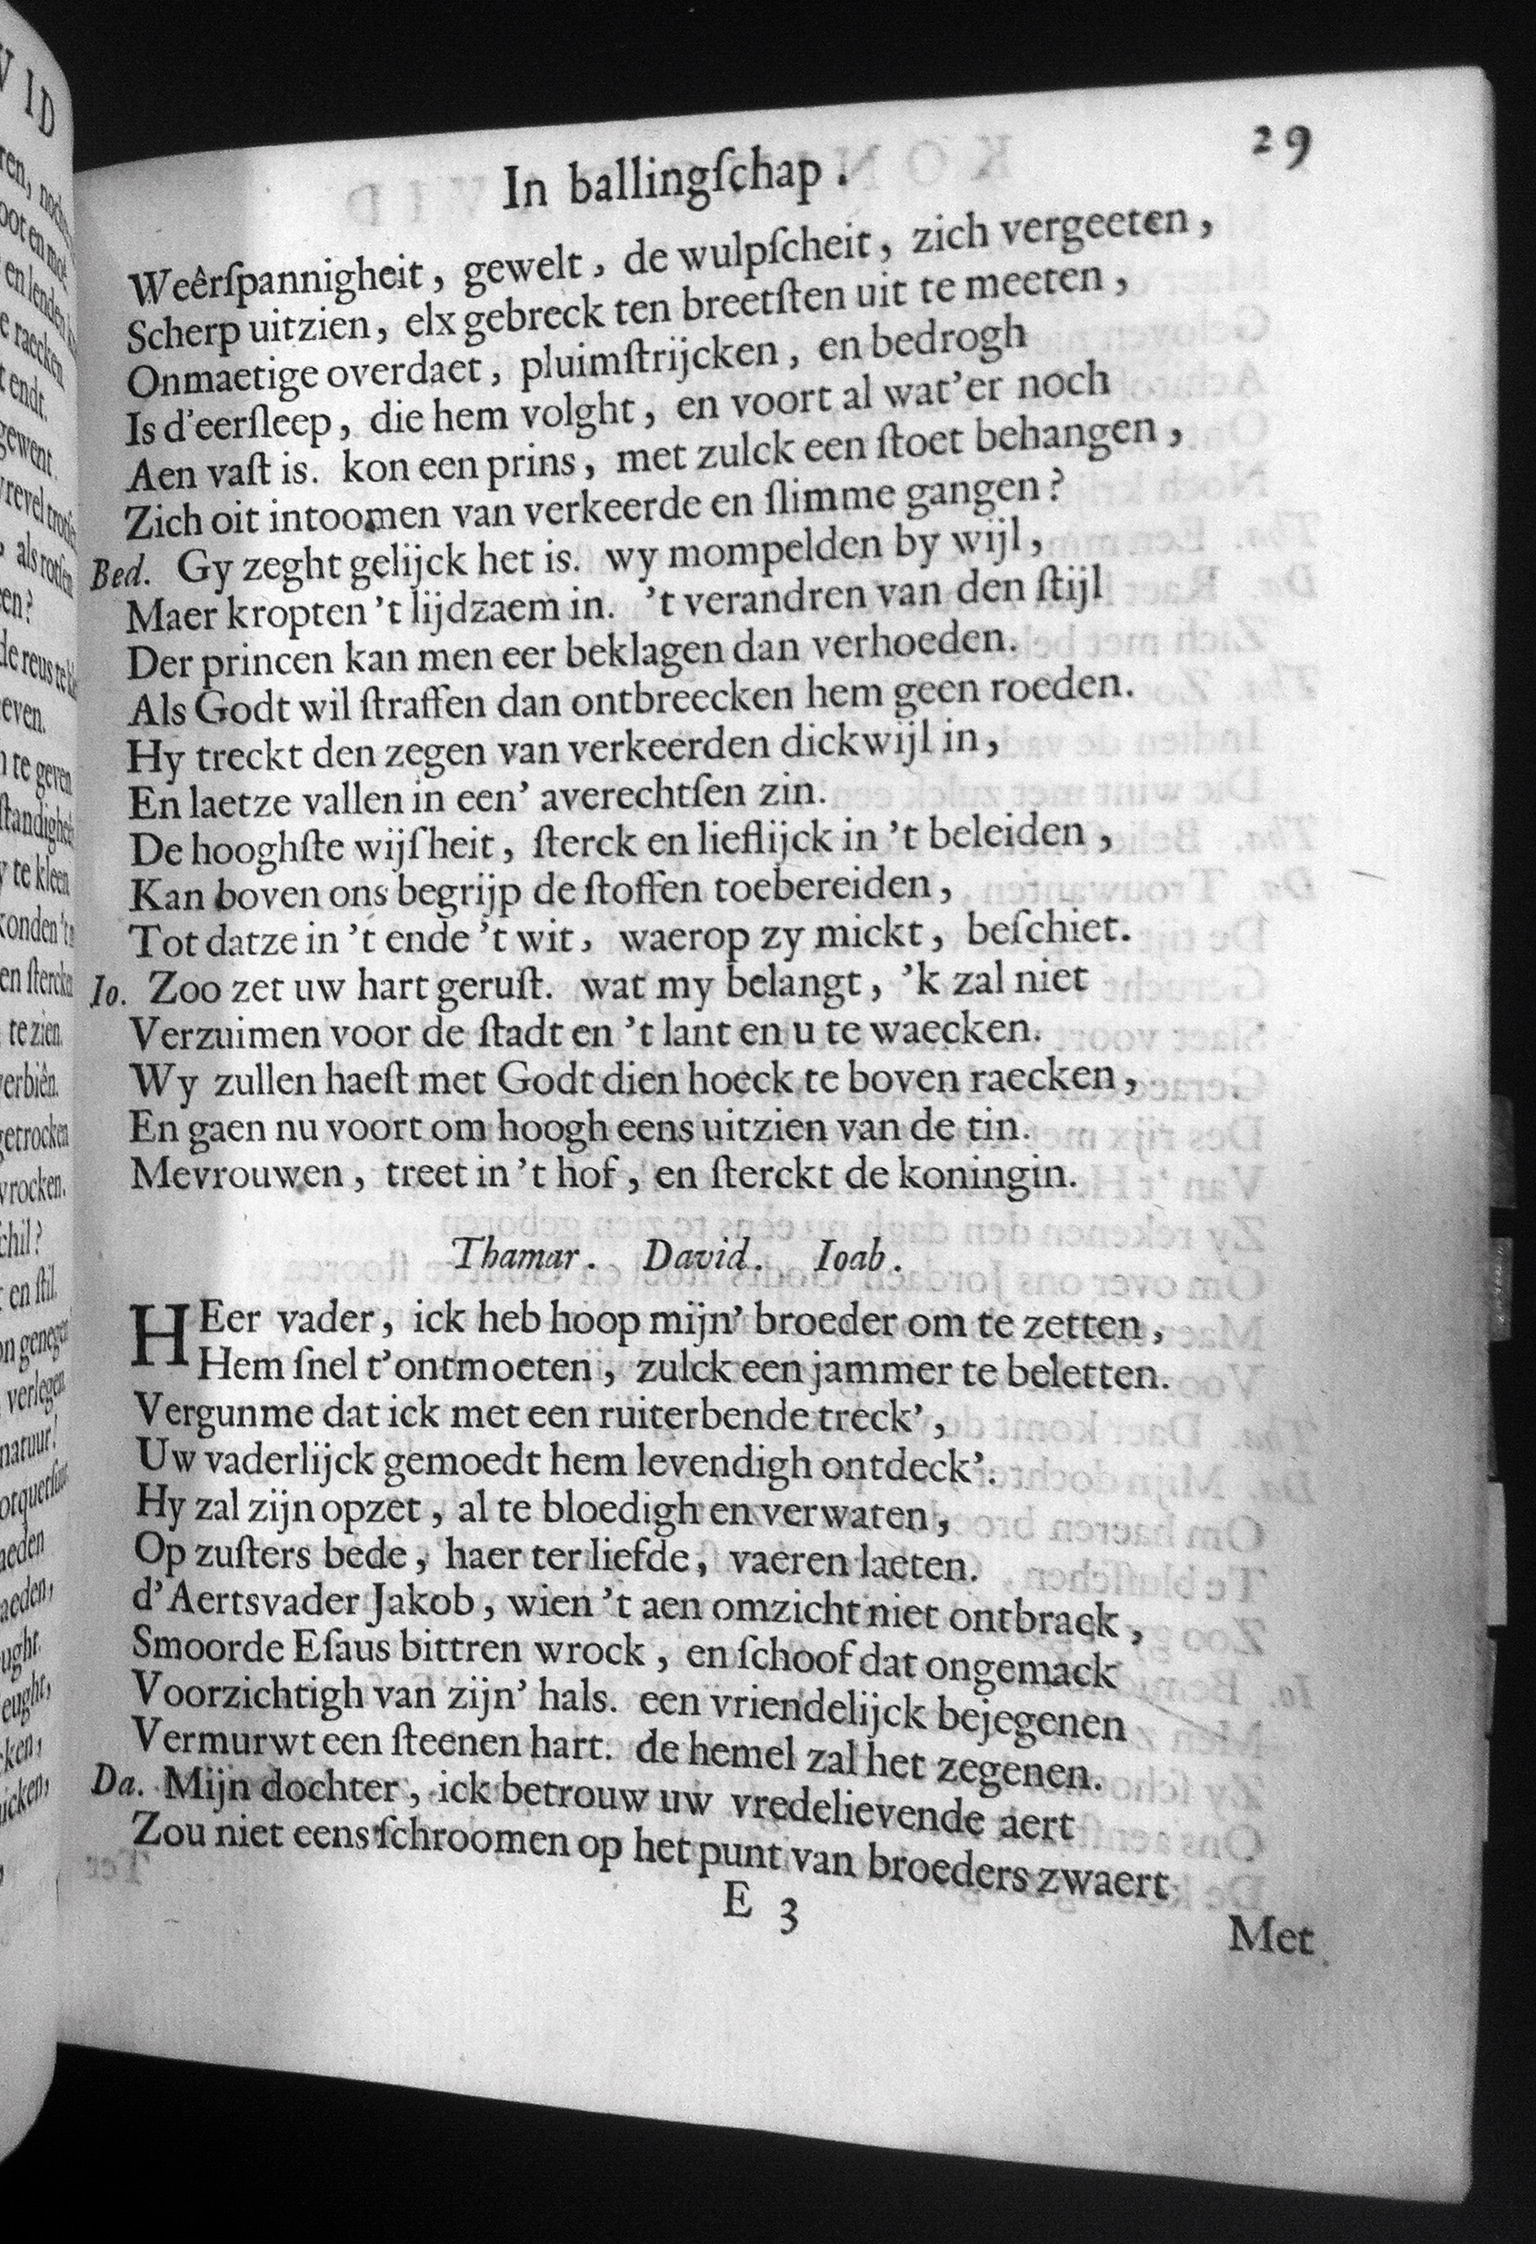 29
In ballingſchap.
Weêrſpannigheit, gewelt, de wulpſcheit, zich vergeeten,
Scherp uitzien, elx gebreck ten breetſten uit te meeten,
Onmaetige overdaet, pluimſtrijcken, en bedrogh
Is d'eerſleep, die hem volght, en voort al wat'er noch
Aen vaſt is. kon een prins, met zulck een ſtoet behangen,
Zich oit intoomen van verkeerde en ſlimme gangen?
Bed. Gy zeght gelijck het is. wy mompelden by wijl,
Maer kropten 't lijdzaem in. 't verandren van den ſtijl
Der princen kan men eer beklagen dan verhoeden.
Als Godt wil ſtraffen dan ontbreecken hem geen roeden.
Hy treckt den zegen van verkeerden dickwijl in,
En laetze vallen in een' averechtſen zin.
De hooghſte wijſheit, ſterck en lieflijck in 't beleiden,
Kan boven ons begrijp de ſtoffen toebereiden,
Tot datze in 't ende 't wit, waerop zy mickt, beſchiet.
Io. Zoo zet uw hart geruſt. wat my belangt, 'k zal niet
Verzuimen voor de ſtadt en 't lant en u te waecken.
Wy zullen haeſt met Godt dien hoeck te boven raecken,
En gaen nu voort om hoogh eens uitzien van de tin.
Mevrouwen, treet in 't hof, en ſterckt de koningin.
Thamar. David. Ioab.
HEer vader, ick heb hoop mijn' broeder om te zetten,
Hem ſnel t'ontmoeten, zulck een jammer te beletten.
Vergunme dat ick met een ruiterbende treck',
Uw vaderlijck gemoedt hem levendigh ontdeck'.
Hy zal zijn opzet, al te bloedigh en verwaten,
Op zuſters bede, haer ter liefde, vaeren laeten.
d'Aertsvader Jakob, wien 't aen omzicht niet ontbrack,
Smoorde Eſaus bittren wrock, en ſchoof dat ongemack
Voorzichtigh van zijn' hals. een vriendelijck bejegenen
Vermurwt een ſteenen hart. de hemel zal het zegenen.
Da. Mijn dochter, ick betrouw uw vredelievende aert
Zou niet eens ſchroomen op het punt van broeders zwaert
E 3
Met